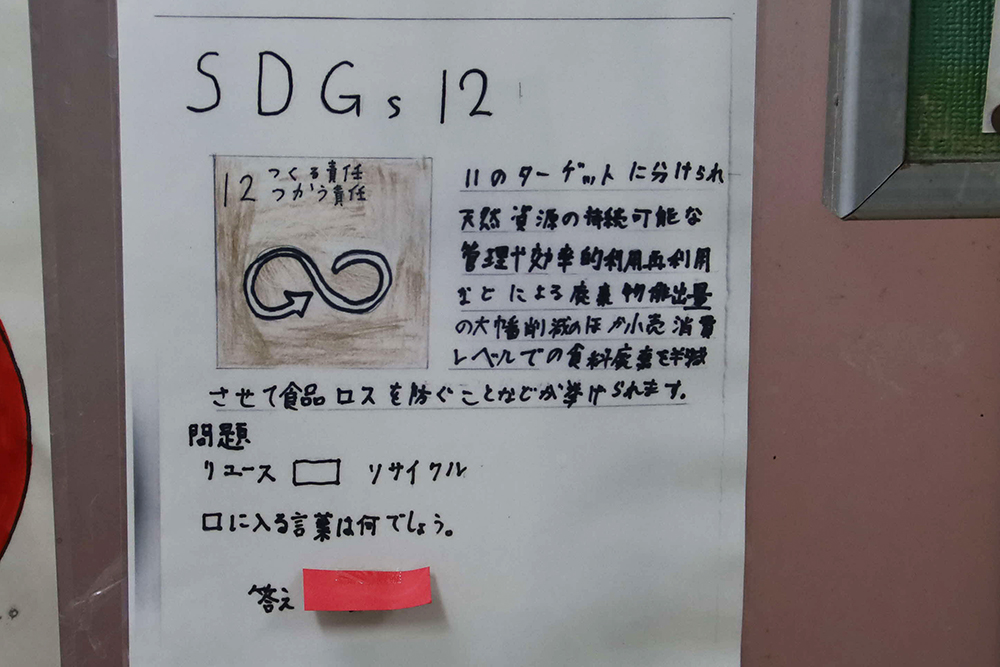 SDGs 12
12 つくる責任
つかう責任
11のターゲットに分けられ
天然資源の持続可能な
管理や効率的利用再利用
などによる廃棄物排出量
の大幅削減のほか小売消費
レベルでの食料廃棄を半減
させて食品ロスを防ぐことなどが挙げられます。
問題
リユース □ リサイクル
□に入る言葉は何でしょう。
答え